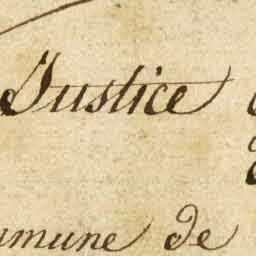 Justice
mmune de